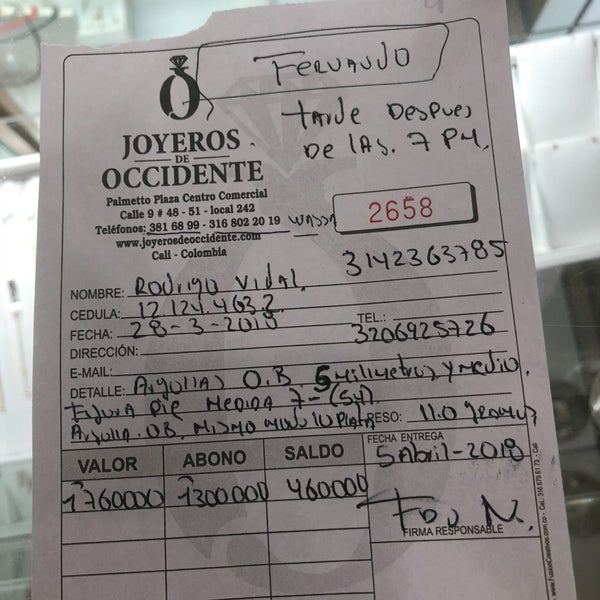 FERNANDO
TARDE DESPUES
DE LAS. 7 PM.
JOYEROS
DE
OCCIDENTE
Palmetto Plaza Centro Comercial
Calle 9 # 48 - 51 - local 242
Teléfonos: 381 68 99 - 316 802 20 19
www.joyerosdeoccidente.com
Cali - Colombia
2658
3142363785
NOMBRE: Rodrigo Vidal.
CEDULA: 12 124.463.2
FECHA: 28-3-2018
TEL.: 3206925726
DIRECCIÓN:
E-MAIL:
DETALLE: Argollas O.B. 5 milimetros y medio.
PIE MEDIDA 7-
Argolla. O.B. MISMO
PESO: 11.0 gramos
VALOR ABONO SALDO
FECHA ENTREGA
5 Abril-2018
1760000 1300000 460000
FIRMA RESPONSABLE